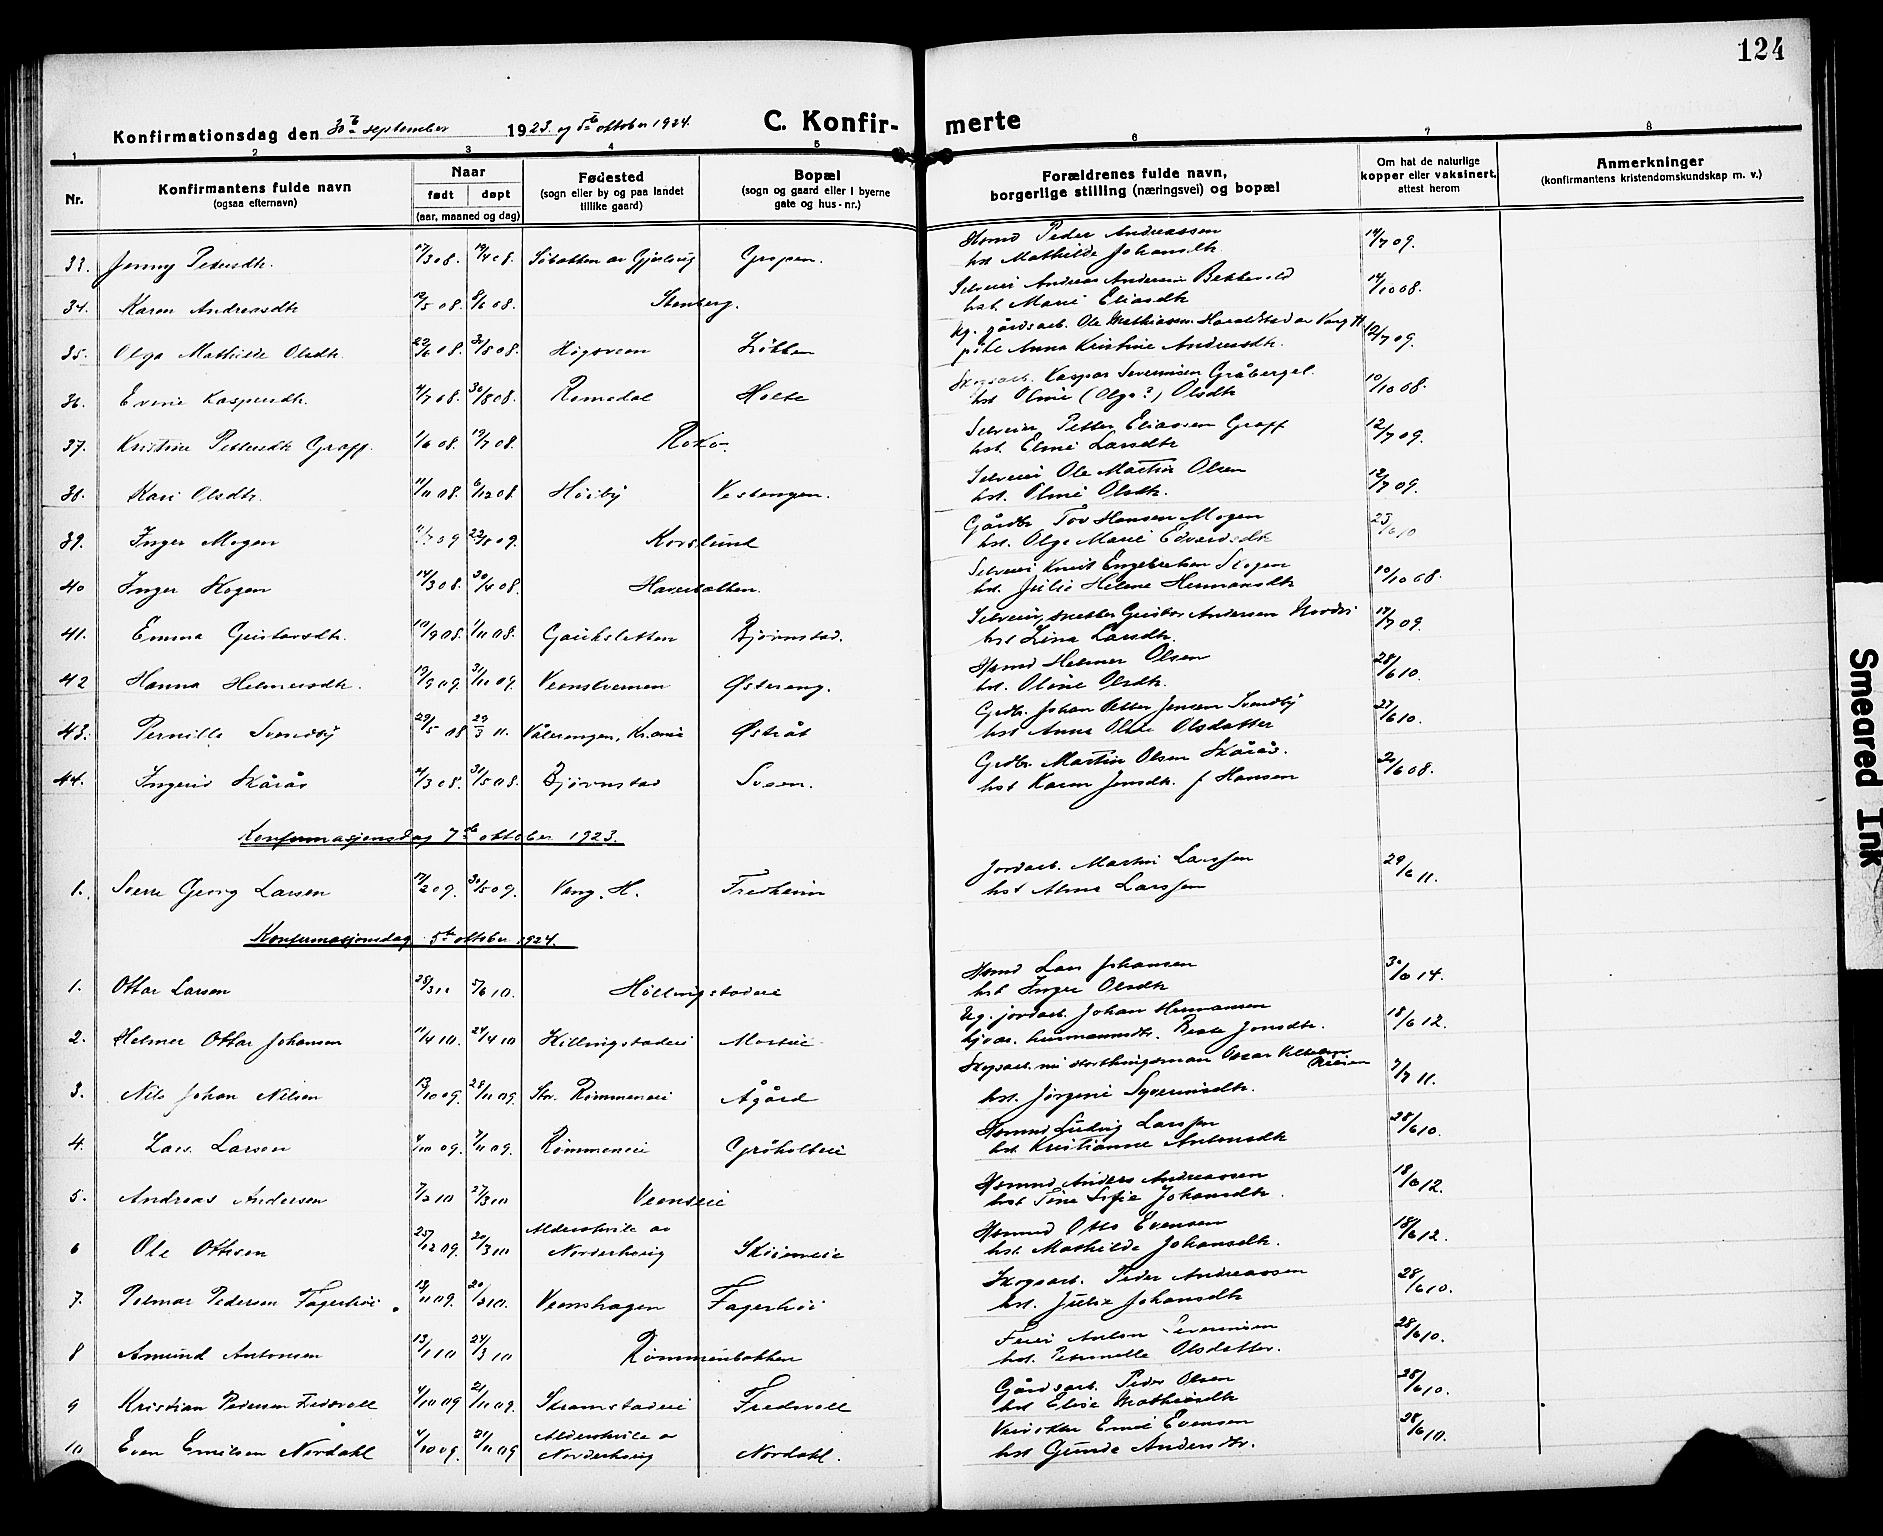 124
Konfirmationsdag den 30te september 1923 og 5te oktober 1924. C. Konfir- merte
1 2 3 4 5 6 7 8
Nr. Konfirmantens fulde navn (ogsaa efternavn) Naar født døpt (aar, maaned og dag) Fødested (sogn eller by og paa landet tillike gaard) Bopæl (sogn og gaard eller i byerne gate og hus-nr.) Forældrenes fulde navn, borgerlige stilling (næringsvei) og bopæl Om hat de naturlige kopper eller vaksinert, attest herom Anmerkninger (konfirmantens kristendomskundskap m. v.)
33. Jenny Pedersdtr. 17/3 08. 19/4 08. Gropen. Husmd Peder Andreassen
hst Mathilde Johansdtr. 14/7 09.
34. Karen Andreasdtr 12/5 08. 8/6 08. Stenberg. Selveier Andreas Andersen Bekkevold
hst. Marie Eliasdtr 14/10 08.
35. Olga Mathilde Olsdtr. 22/6 08. 30/8 08. Høgsveen Løbben Ug. gårdsarb. Ole Mathiassen Haraldstad av Vang H.
pike Anna Kristine Andreasdtr. 12/7 09.
36. Evine Kaspersdtr. 4/7 08. 30/8 08. Romedal Holte Skogsarb. Kaspar Severinsen Gråberget.
hst Oline (Olga?) Olsdtr 10/10 08.
37. Kristine Pettersdtr Graff. 1/6 08. 19/7 08. Rokø. Selveier Petter Eliassen Graff
hst. Eline Larsdtr 12/7 09.
38. Kari Olsdtr. 11/11 08. 6/12 08. Høiby Vestengen. Selveier Ole Martin Olsen
hst. Oline Olsdtr. 12/7 09.
39. Inger Mogen 11/7 09 22/8 09. Korslund Gårdbr. Tov Hansen Mogen
hst. Olga Marie Edvardsdtr 23/6 10
40 Inger Skogen 14/3 08. 30/4 08. Haverbakken. Selveier Knut Engebretsen Skogen
hst. Julie Helene Hermansdtr 10/10 08.
41. Emma Gustavsdtr. 10/9 08. 1/11 08. Gauksletten Bjørnstad. Selveier, snekker Gustav Andersen
hst Lina Larsdtr. 17/7 09.
42 Hanna Helmersdtr. 19/9 09. 31/10 09. Veenskvernen Østereng. Husmd Helmer Olsen
hst. Oline Olsdtr. 28/6 10.
43. Pernille Svendby 29/5 08 29/3 11. Vålerengen, Kr.ania Østråt Grdbr. Johan Petter Jensen Svendby
hst Anna Oline Olsdatter 27/6 10.
44. Ingrid Skårås 4/3 08. 31/5 08. Bjørnstad Sveen. Grdbr. Martin Olsen Skårås.
hst Karen Jensdtr. f Hansen 20/6 08.
Konfirmasjonsdag 7de oktober 1923.
1. Sverre Georg Larsen 17/2 09. 30/5 09. Vang. H. Fredheim Jordarb. Martin Larssen
hst Alma Larssen 29/6 11.
Konfirmasjonsdag 5te oktober 1924.
1. Ottar Larsen 28/3 10 5/6 10. Høllingstadeie Husmd Lars Johansen
hst Inger Olsdtr 30/6 14.
2. Helmer Ottar Johansen 11/4 10. 24/4 10 Killingstadeie Ug. jordarb. Johan Hermansen
husmannsdtr. Beate Jonsdtr. 18/6 12.
3. Nils Johan Nilsen 13/10 09. 28/11 09. Str. Rømmeneie Ågård Skogsarb. nu storthingsman Oscar Nilsen
hst. Jørgine Syverinsdtr. 7/7 11.
4. Lars Larsen 4/10 09. 7/11 09. Rømmeneie Gråholteie Husmd Ludvig Larssen
hst Kristianne Antonsdtr 28/6 10.
5. Andreas Andersen 7/2 10 27/3 10 Veenseie Husmd Anders Andreassen
hst Tine Sofie Johansdtr. 18/6 12.
6 Ole Ottesen 25/12 09. 20/3 10 Alderskvile av
Norderhovig Skiømeie Husmd Otto Evensen
hst. Mathilde Johansdtr. 18/6 12.
7. Pelmar Pedersen Fagerhøi. 12/11 09. 20/2 10. Veenshagen Fagerhøi Skogsarb. Peder Andreassen
hst. Julie Johansdtr 28/6 10.
8 Amund Antonsen 13/1 10 24/3 10 Rømmenbakken Feier Anton Severinsen
hst. Petronelle Olsdatter. 28/6 10.
9 Kristian Pedersen Fredvoll 4/10 09 21/11 09. Skramstadeie Fredvoll Gårdsarb. Peder Olsen
hst Elise Mathisdtr 28/6 10.
10 Even Emilsen Nordahl 4/10 09. 21/11 09 Alderskvile av
Norderhovig Nordahl. Emil Evensen
hst Gunda Andersdtr. 28/6 10.
Smeared Ink